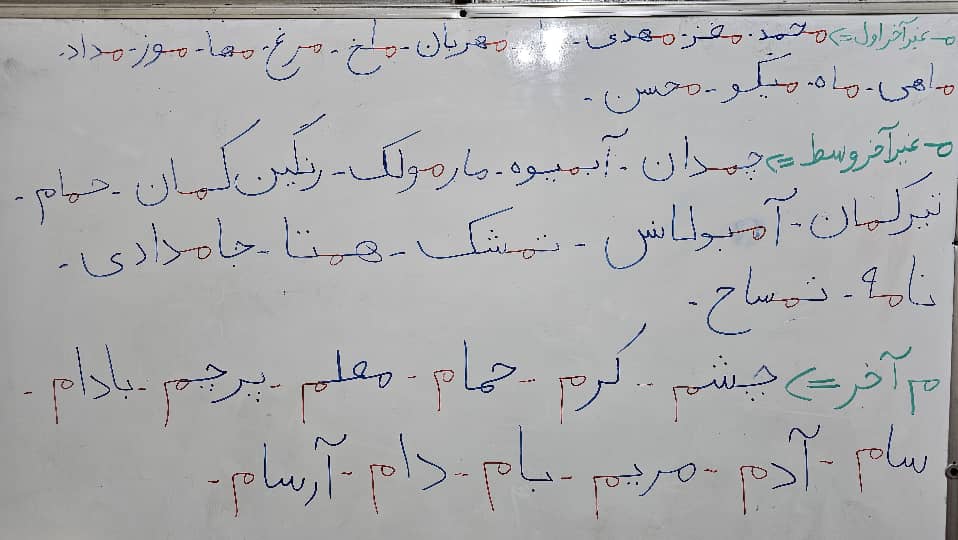 مـ غیر آخر اول => محمد. مغز. مهدی. مهربان. ملخ. مرغ. مها. موز. مداد.
ماهی. ماه. میگو. محسن.
ـمـ غیر آخر وسط => چمدان. آبمیوه. مارمولک. رنگین کمان. حمام.
تیرکمان. آمبولانس. تمشک. همتا. جامدادی.
نامه. تمساح.
م آخر => چشم. کرم. حمام. معلم. پرچم. بادام.
سام. آدم. مریم. بام. دام. آرسام.